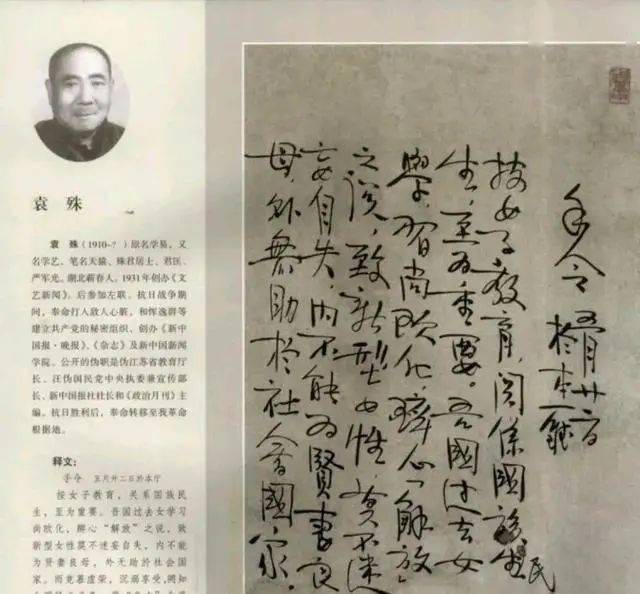 袁 殊
袁 殊（1910-?）原名学易，又
名学艺、笔名天猿、殊君居士、君匡、
严军光。湖北蕲春人。1931年创办《文
艺新闻》。后参加左联。抗日战争期
间，奉命打入敌人心脏，和恽逸群等
建立共产党的秘密组织、创办《新中
国报·晚报》、《杂志》及新中国新闻
学院。公开的伪职是伪江苏省教育厅
长、汪伪国民党中央执委兼宣传部
长、新中国报社社长和《政治月刊》主
编。抗日胜利后，奉命转移至我革命
根据地。
释文：
手令 五月廿二日於本厅
按女子教育，关系国族民
生，至为重要。吾国过去女学习
尚欧化，醉心“解放”之说，致
新型女性莫不迷妄自失，内不能
为贤妻良母，外无助于社会国
家。而竟慕虚荣，沉溺享受，
手令 五月廿二日
於本厅
按女子教育，关係國族民
生，至为重要。吾國过去女
學，習尚欧化，醉心「解放」
之说，致新型女性，莫不迷
妄自失，内不能为賢妻良
母，外無助於社会國家。